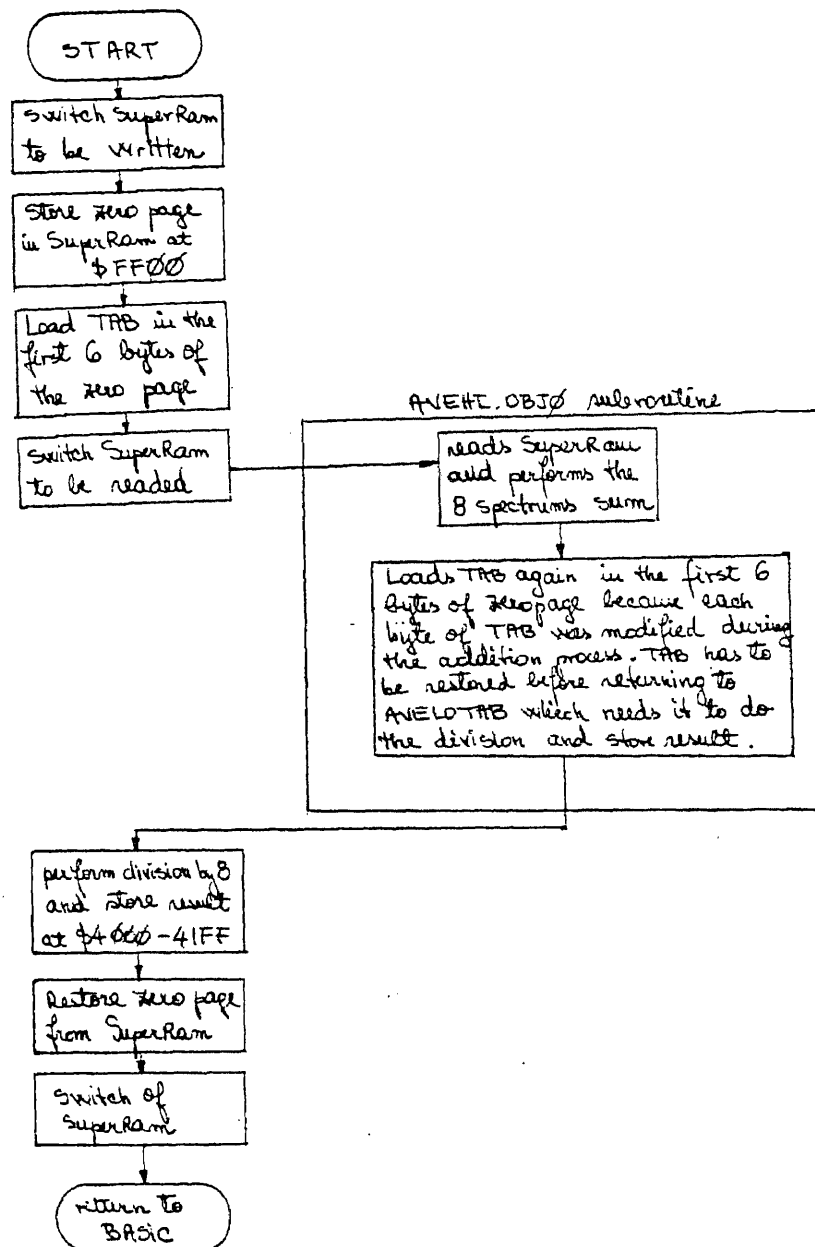 START
Switch SuperRam
to be written
Store zero page
in SuperRam at
$FF00
Load TAB in the
first 6 bytes of
the zero page
switch SuperRam
to be readed
AVEHI.OBJ0 subroutine
reads SuperRam
and performs the
8 spectrums sum
Loads TAB again in the first 6
bytes of zeropage because each
byte of TAB was modified during
the addition process. TAB has to
be restored before returning to
AVELOTAB which needs it to do
the division and store result.
perform division by 8
and store result
at $4000-41FF
Restore zero page
from SuperRam
switch of
SuperRam
return to
BASIC